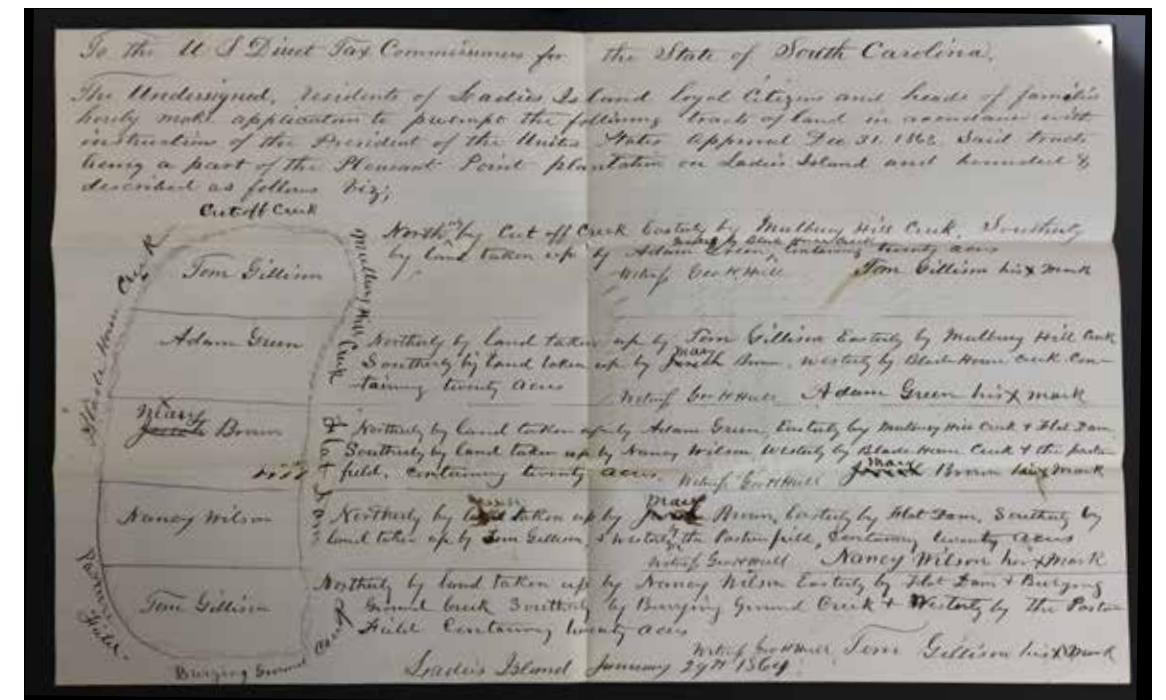 To the U S Direct Tax Commissioners for the State of South Carolina.
The Undersigned, residents of Ladies Island loyal Citizens and heads of families
hereby make application to preempt the following tracts of land in accordance with
instructions of the President of the Unites States approved Dec 31. 1863. Said tracts
being a part of the Pleasant Point plantation on Ladies Island and bounded &
described as follows Viz;
Cut off Creek
Blade House Creek
Mulbury Hill Creek
Tom Gillison
Adam Green
Mary
Brown
Nancy Wilson
Tom Gillison
Flot Dam
Pasture
Field.
Burying Ground Creek
North by Cut off Creek Easterly by Mulbury Hill Creek. Southerly
by land taken up by Adam Green, Containing twenty acres
Witness Geo H Hull Tom Gillison his X mark
Northerly by land taken up by Tom Gillison Easterly by Mulbury Hill Creek
Southerly by land taken up by Mary Brown, westerly by Blade House Creek Con-
taining twenty acres
Witness Geo H Hull Adam Green his X mark
Northerly by land taken up by Adam Green, Easterly by Mulbury Hill Creek & Flot Dam
Southerly by land taken up by Nancy Wilson Westerly by Blade House Creek & the pasture
field, Containing twenty acres.
Witness Geo H Hull Mary Brown X mark
Northerly by land taken up by Mary Brown, Easterly by Flot Dam, Southerly by
land taken up by Tom Gillison, & Westerly by the Pasture field, Containing twenty acres
Witness Geo H Hull Nancy Wilson her X mark
Northerly by land taken up by Nancy Wilson Easterly by Flot Dam & Burying
Ground Creek Southerly by Burrying Ground Creek & Westerly by the Pasture
Field Containing twenty acres
Witness Geo H Hull Tom Gillison his X Mark
Ladies Island January 29th 1864